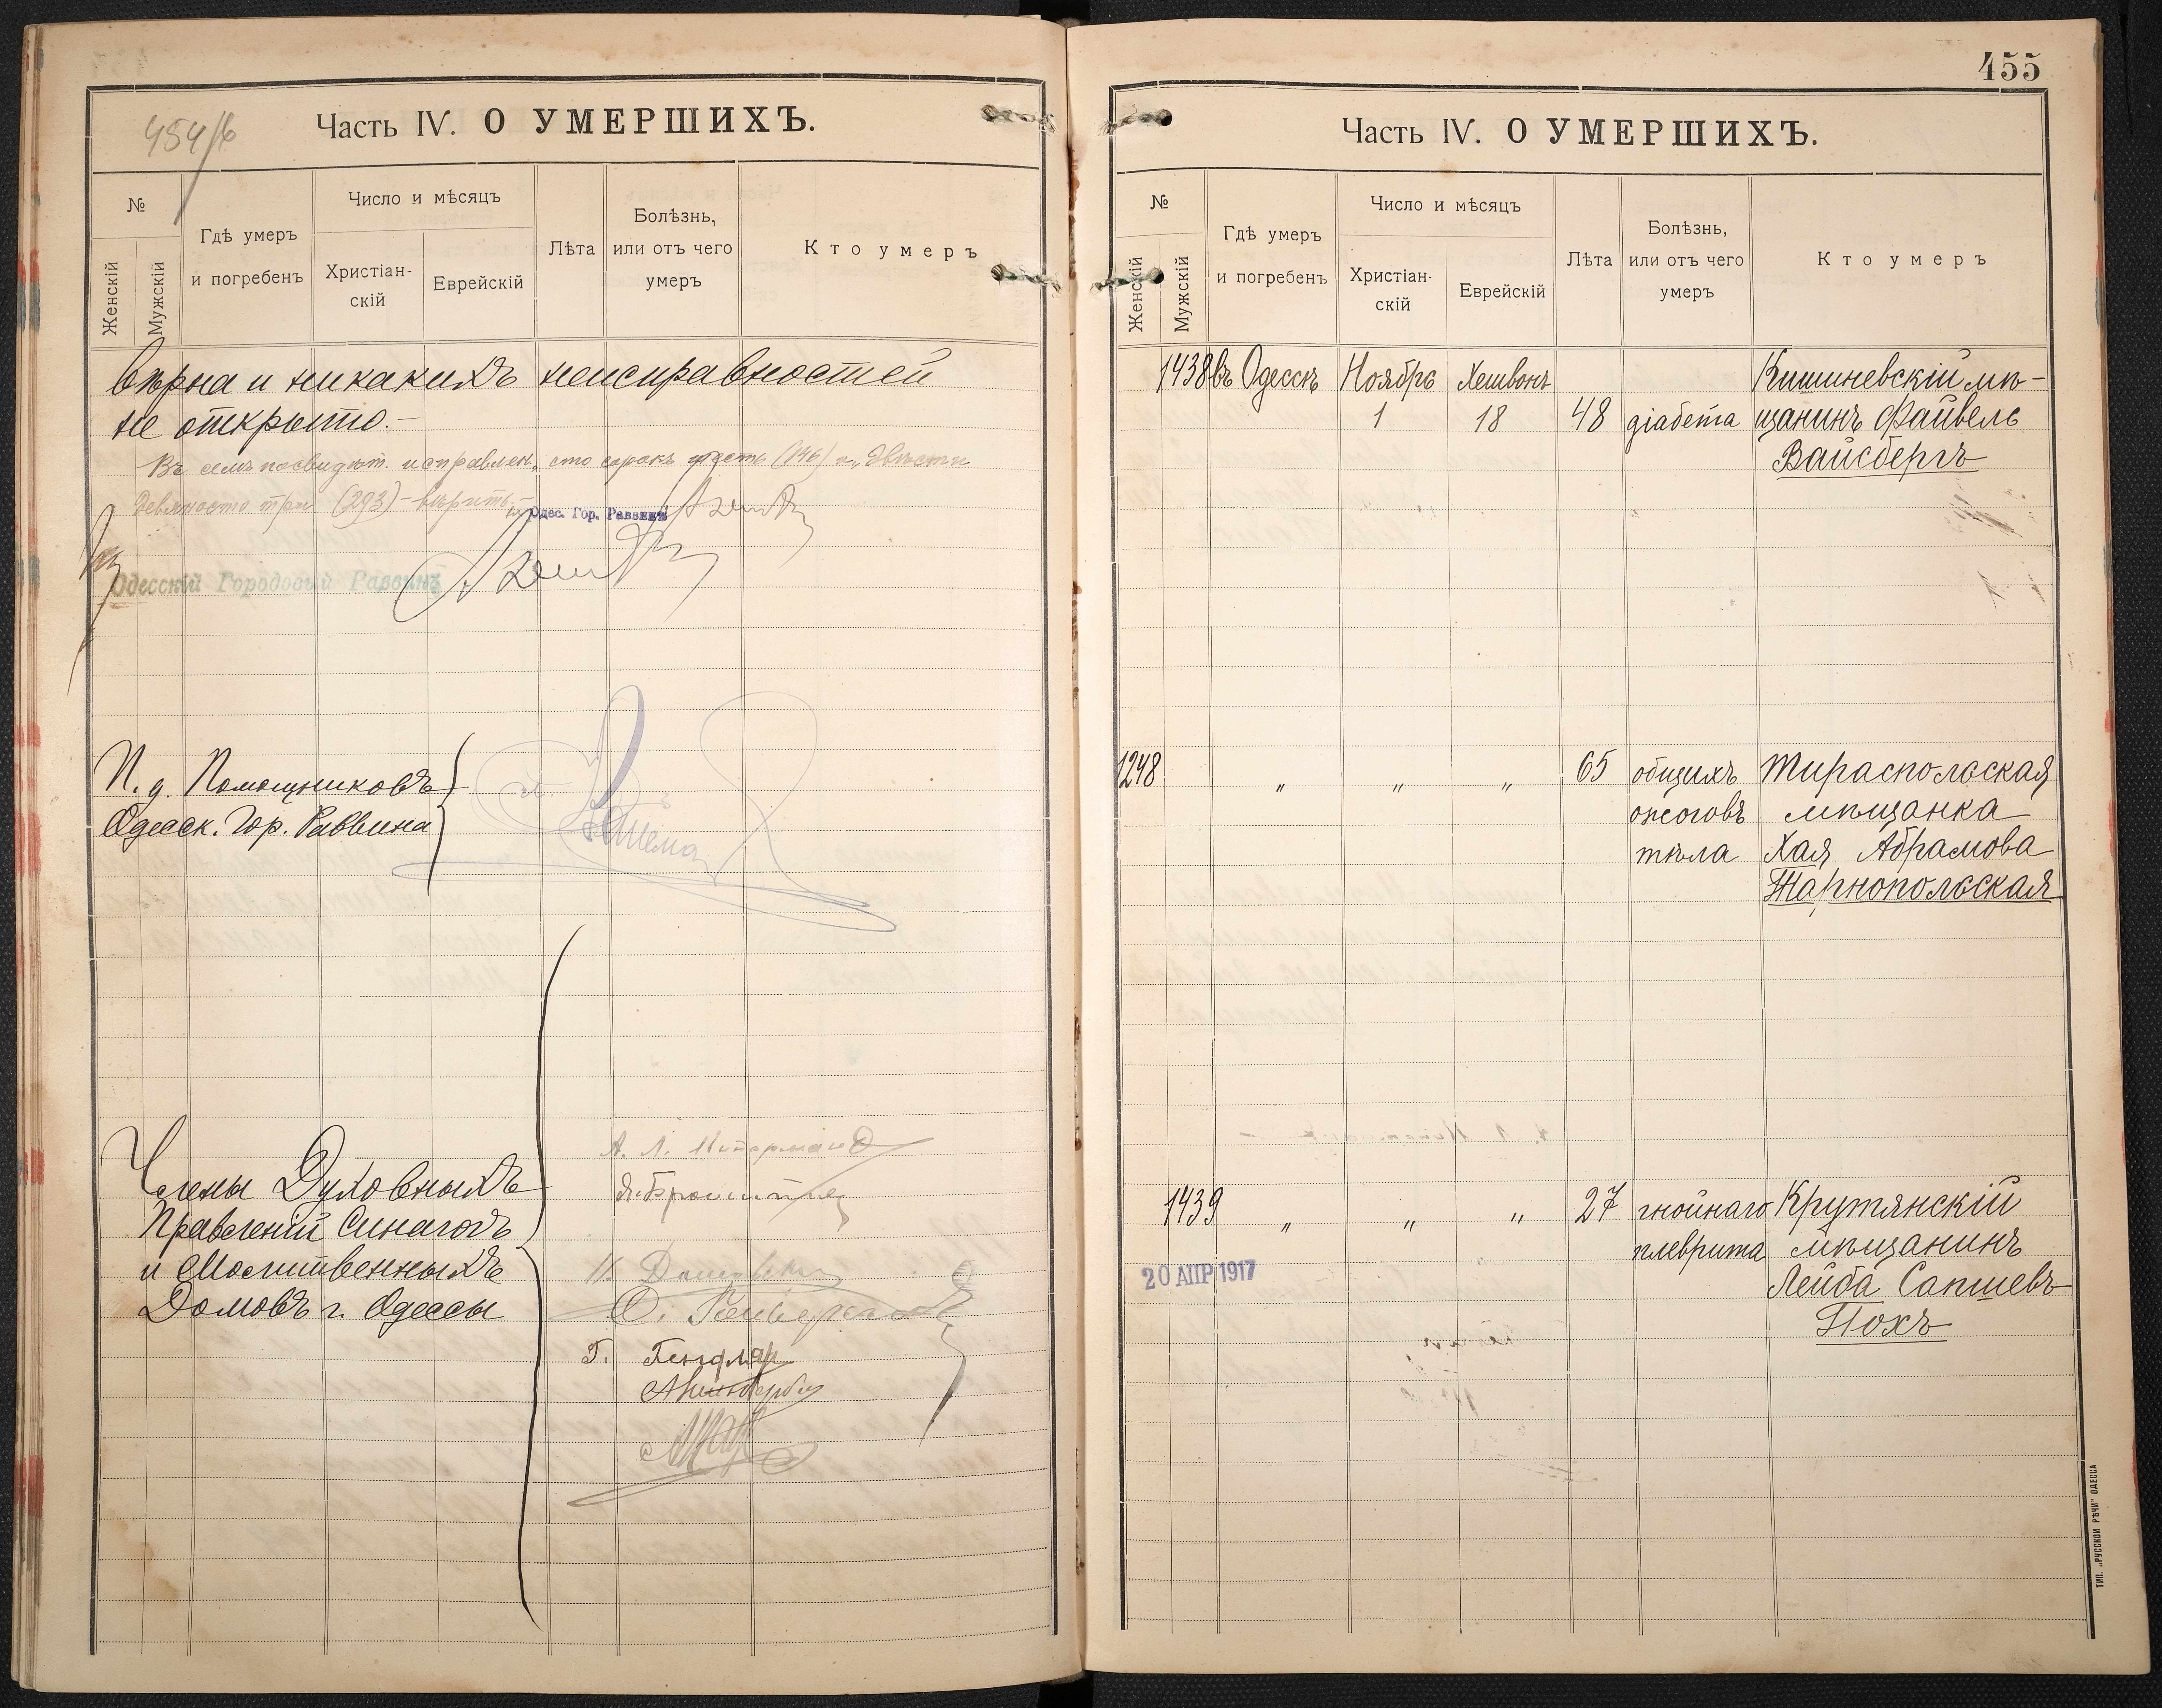 454/б
Часть IV. О УМЕРШИХЪ.
№
Женскій
Мужскій
Гдѣ умеръ
и погребенъ
Число и мѣсяцъ
Христіан-
скій
Еврейскій
Лѣта
Болѣзнь,
или отъ чего
умеръ
Кто умеръ
вѣрна и никакихъ неисправностей
не открыто.-
Въ семъ посвидѣт. исправлен. „сто сорокъ шесть (146) и „двѣсти
девяносто три (293) - вѣрить.-
Одес. Гор. Раввинъ
Одесскій Городовый Раввинъ
И. д. Помощниковъ
Одесск. Гор. Раввина
Члены Духовныхъ
Правленій Синагогъ
и Молитвенныхъ
Домовъ г. Одессы
455
Часть IV. О УМЕРШИХЪ.
№
Женскій
Мужскій
Гдѣ умеръ
и погребенъ
Число и мѣсяцъ
Христіан-
скій
Еврейскій
Лѣта
Болѣзнь,
или отъ чего
умеръ
Кто умеръ
1438 въ Одессѣ Ноября Хешвонъ Кишиневскій мѣ-
1 18 48 діабета щанинъ Файвель
Вайсбергъ
1248 „ „ „ 65 общихъ Тираспольская
ожоговъ мѣщанка
тѣла Хая Абрамова
Тарнопольская
1439 „ „ „ 27 гнойнаго Крутянскій
плеврита мѣщанинъ
20 АПР 1917
Лейба Сапшевъ
Похъ
ТИП. „РУССКОЙ РѢЧИ" ОДЕССА